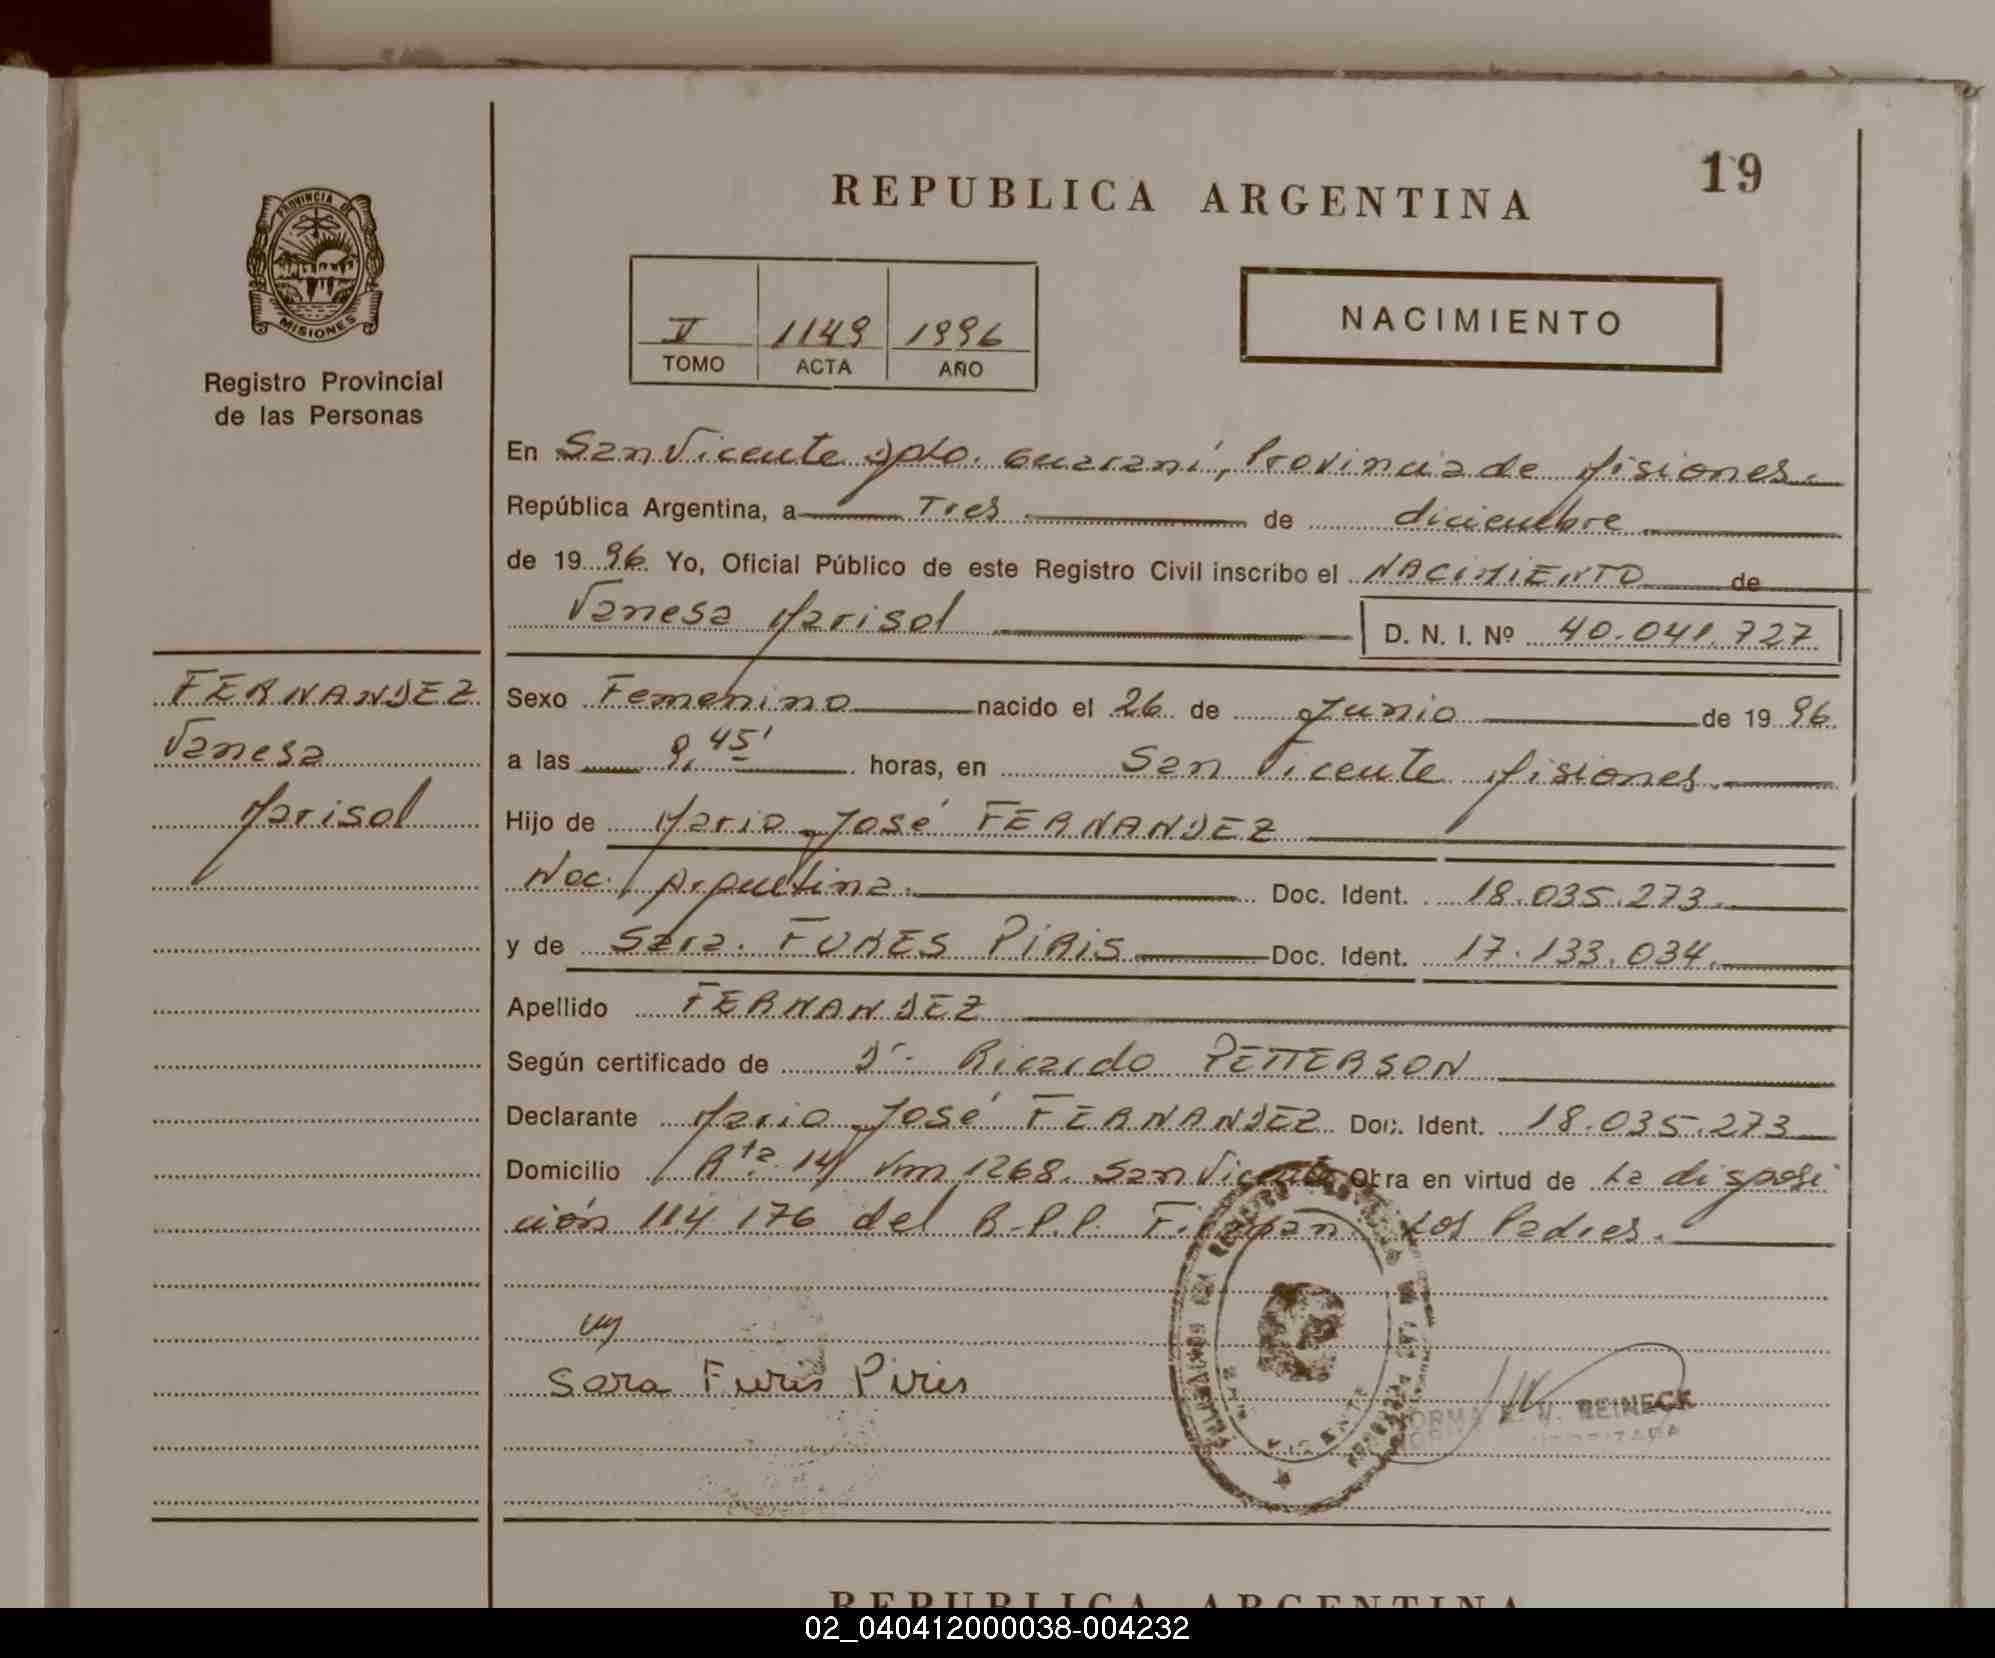 19
REPUBLICA ARGENTINA
PROVINCIA DE
MISIONES
Registro Provincial
de las Personas
V 1149 1996
TOMO ACTA AÑO
NACIMIENTO
En San Vicente Dpto. Guaraní, Provincia de Misiones.
República Argentina, a Tres de diciembre
de 19 96 Yo, Oficial Público de este Registro Civil inscribo el NACIMIENTO de
Vanesa Marisol D. N. I. Nº 40.041.727
FERNANDEZ
Vanesa
Marisol
Sexo Femenino nacido el 26 de Junio de 19 96.
a las 9,45' horas, en San Vicente Misiones.
Hijo de Mario José FERNANDEZ
Nac. Argentina. Doc. Ident. 18.035.273.
y de Sara. FURES PIRIS Doc. Ident. 17.133.034.
Apellido FERNANDEZ
Según certificado de Dr. Ricardo PETTERSON
Declarante Mario José FERNANDEZ Doc. Ident. 18.035.273
Domicilio Rta. 14 Km 1268. San Vicente Obra en virtud de La disposi
ción 114 176 del R.P.P. Firman Los Padres.
Sara Furis Piris
E. N. REINECK
REPUBLICA ARGENTINA
02_040412000038-004232